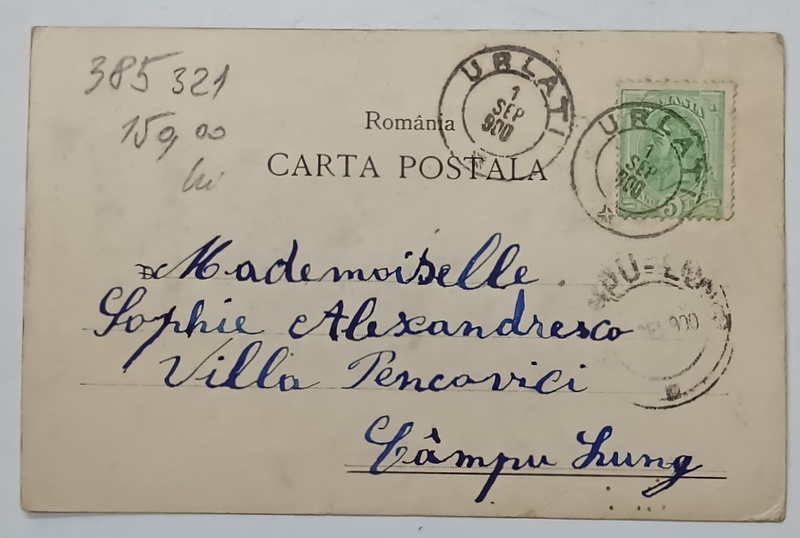 385 321
150,00
lei
URLATI
1
SEP
900
România
CARTA POSTALA
URLATI
1
SEP
900
5
Mademoiselle
Sophie Alexandresco
Villa Pencovici
Câmpu Lung
MPU-LUNG
900